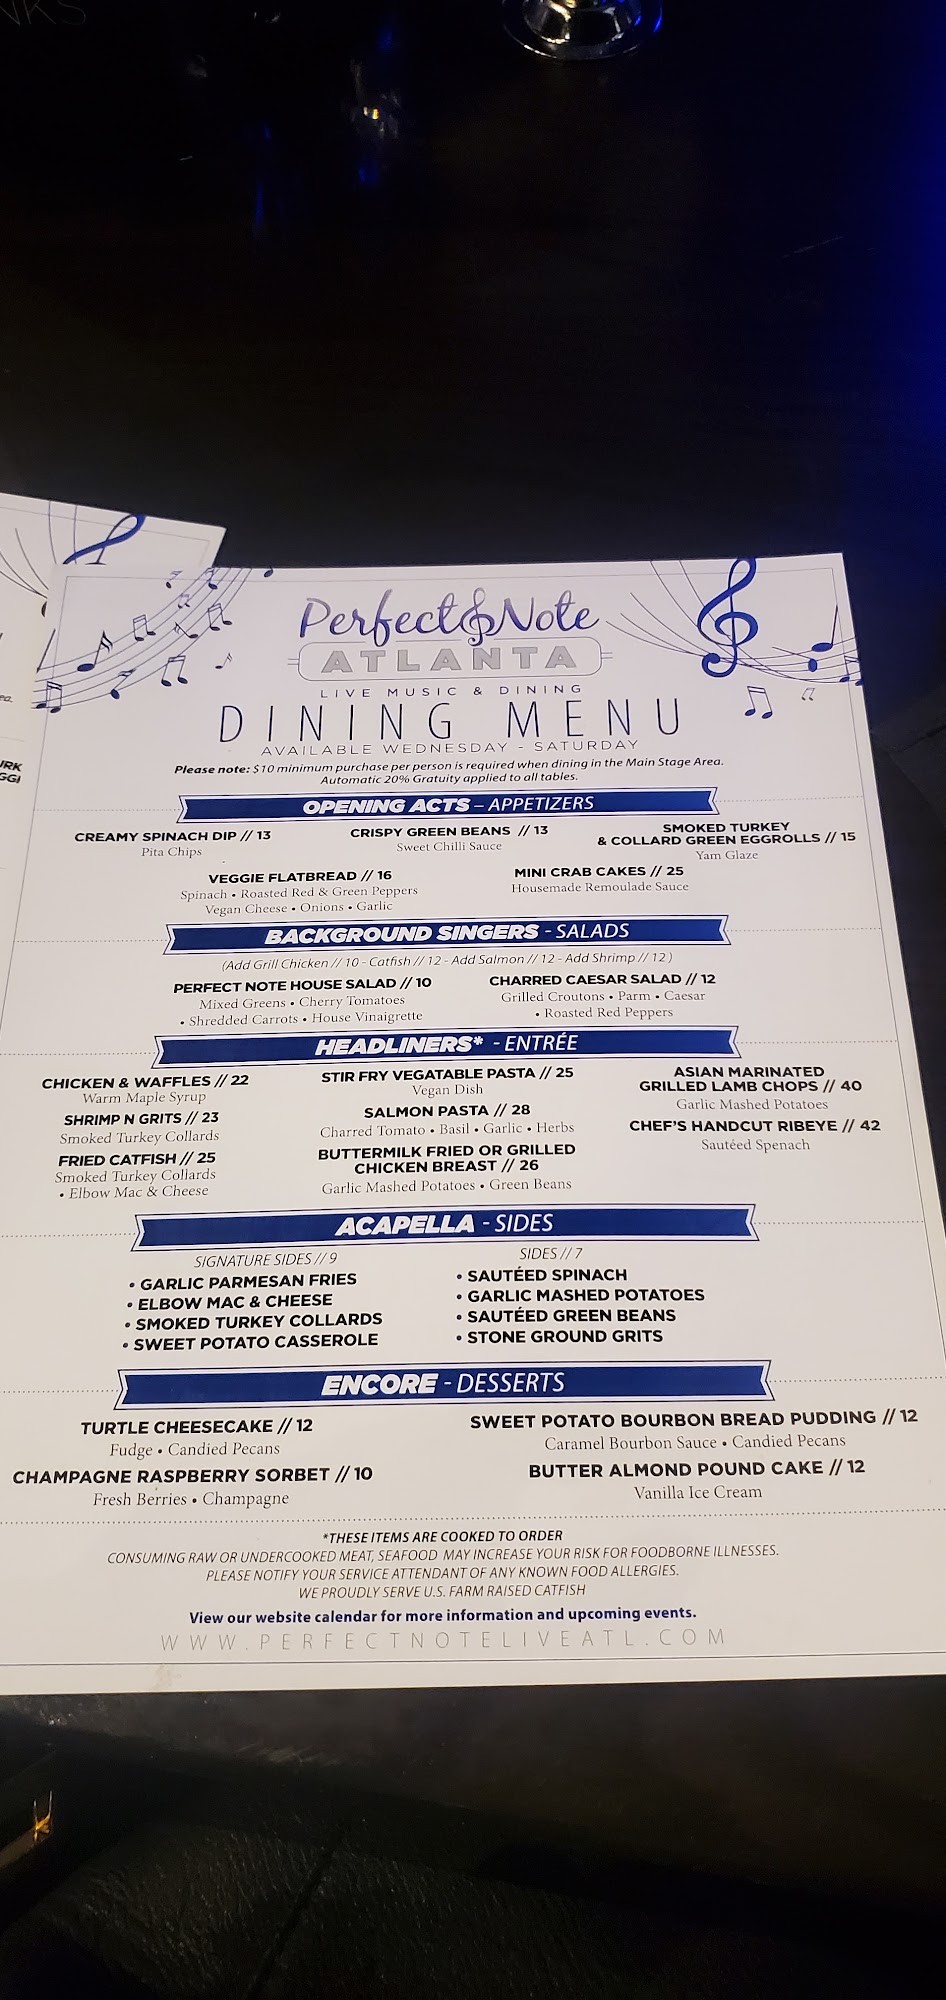 NKS
Perfect Note
ATLANTA
LIVE MUSIC & DINING
DINING MENU
AVAILABLE WEDNESDAY - SATURDAY
Please note: $10 minimum purchase per person is required when dining in the Main Stage Area.
Automatic 20% Gratuity applied to all tables.
OPENING ACTS – APPETIZERS
CREAMY SPINACH DIP // 13
Pita Chips
CRISPY GREEN BEANS // 13
Sweet Chilli Sauce
SMOKED TURKEY
& COLLARD GREEN EGGROLLS // 15
Yam Glaze
VEGGIE FLATBREAD // 16
Spinach • Roasted Red & Green Peppers
Vegan Cheese • Onions • Garlic
MINI CRAB CAKES // 25
Housemade Remoulade Sauce
BACKGROUND SINGERS - SALADS
(Add Grill Chicken // 10 - Catfish // 12 - Add Salmon // 12 - Add Shrimp // 12 )
PERFECT NOTE HOUSE SALAD // 10
Mixed Greens • Cherry Tomatoes
• Shredded Carrots • House Vinaigrette
CHARRED CAESAR SALAD // 12
Grilled Croutons • Parm • Caesar
• Roasted Red Peppers
HEADLINERS* - ENTRÉE
CHICKEN & WAFFLES // 22
Warm Maple Syrup
SHRIMP N GRITS // 23
Smoked Turkey Collards
FRIED CATFISH // 25
Smoked Turkey Collards
• Elbow Mac & Cheese
STIR FRY VEGATABLE PASTA // 25
Vegan Dish
SALMON PASTA // 28
Charred Tomato • Basil • Garlic • Herbs
BUTTERMILK FRIED OR GRILLED
CHICKEN BREAST // 26
Garlic Mashed Potatoes • Green Beans
ASIAN MARINATED
GRILLED LAMB CHOPS // 40
Garlic Mashed Potatoes
CHEF'S HANDCUT RIBEYE // 42
Sautéed Spenach
ACAPELLA - SIDES
SIGNATURE SIDES // 9
• GARLIC PARMESAN FRIES
• ELBOW MAC & CHEESE
• SMOKED TURKEY COLLARDS
• SWEET POTATO CASSEROLE
SIDES // 7
• SAUTÉED SPINACH
• GARLIC MASHED POTATOES
• SAUTÉED GREEN BEANS
• STONE GROUND GRITS
ENCORE - DESSERTS
TURTLE CHEESECAKE // 12
Fudge • Candied Pecans
CHAMPAGNE RASPBERRY SORBET // 10
Fresh Berries • Champagne
SWEET POTATO BOURBON BREAD PUDDING // 12
Caramel Bourbon Sauce • Candied Pecans
BUTTER ALMOND POUND CAKE // 12
Vanilla Ice Cream
*THESE ITEMS ARE COOKED TO ORDER
CONSUMING RAW OR UNDERCOOKED MEAT, SEAFOOD MAY INCREASE YOUR RISK FOR FOODBORNE ILLNESSES.
PLEASE NOTIFY YOUR SERVICE ATTENDANT OF ANY KNOWN FOOD ALLERGIES.
WE PROUDLY SERVE U.S. FARM RAISED CATFISH
View our website calendar for more information and upcoming events.
WWW.PERFECTNOTELIVEATL.COM